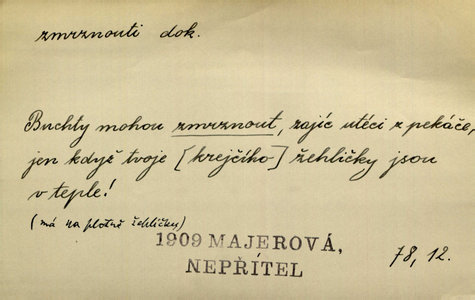 zmrznouti dok.
Buchty mohou zmrznout, zajíc utéci z pekáče,
jen když tvoje [krejčího] žehličky jsou
v teple!
(má na plotně žehličky)
1909 MAJEROVÁ,
NEPŘÍTEL
78, 12.